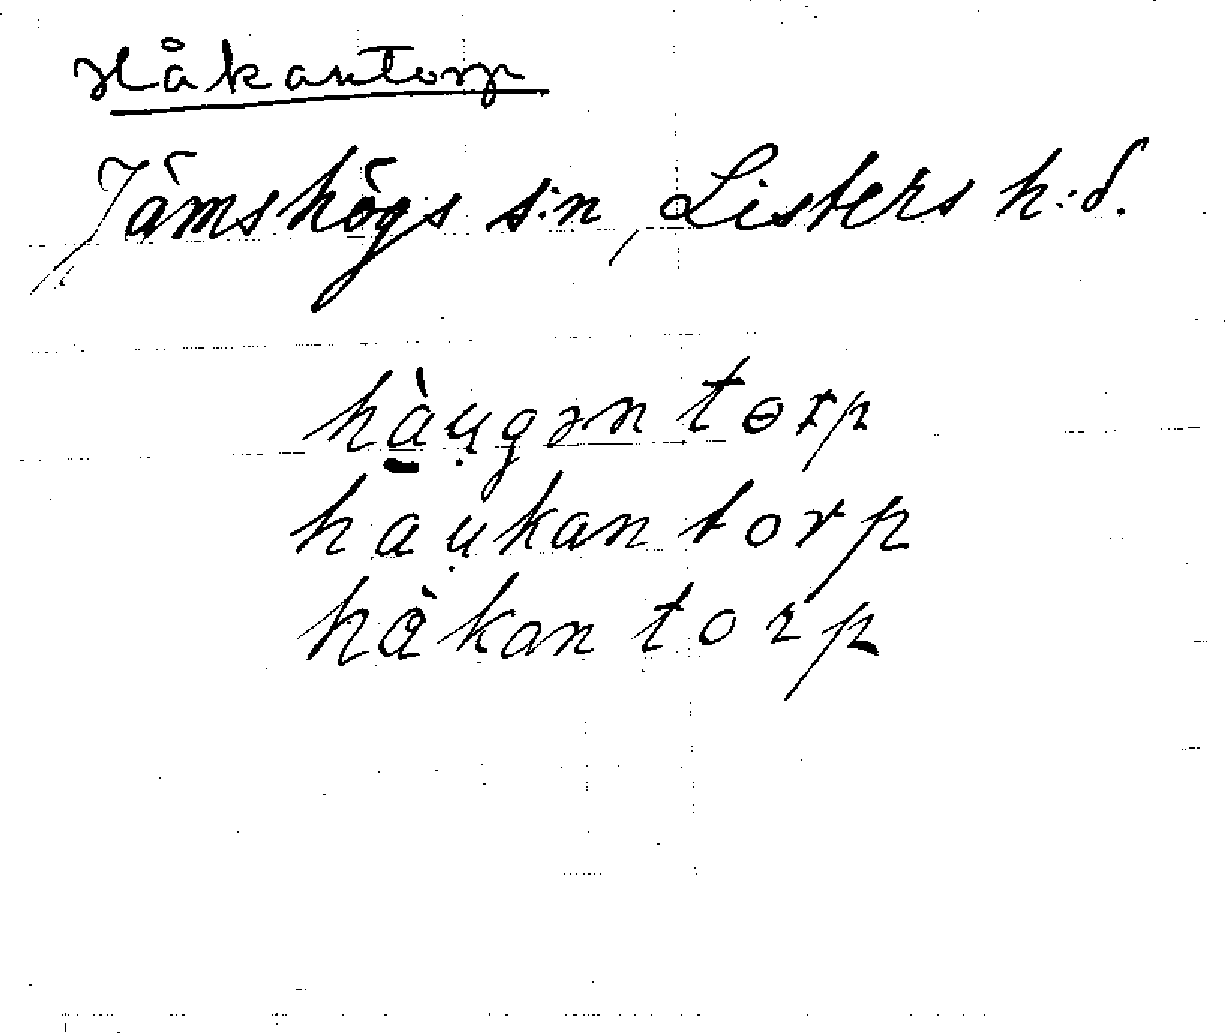 Håkantorp
Jämshögs s:n, Listers h:d.
hàu̯gən tɵrp
hau̯kan torp
hàkan torp